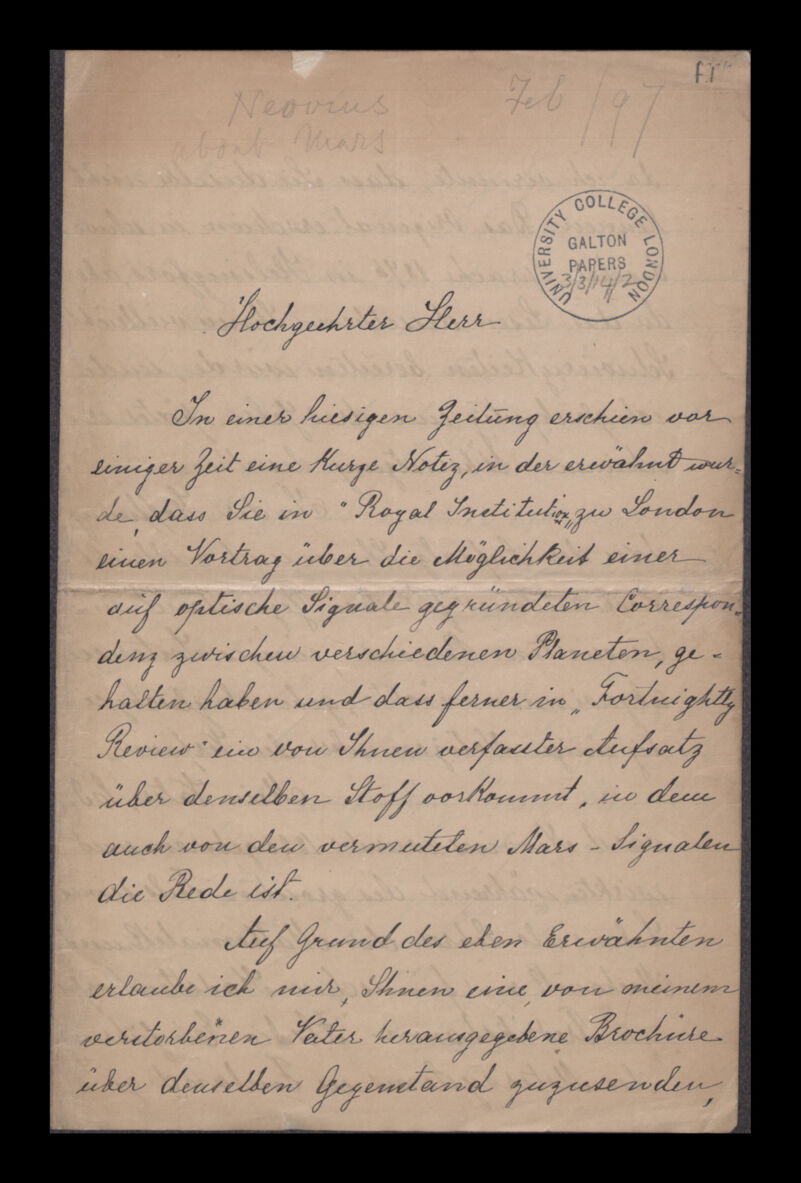 Neovius
about Mars
Feb / 97
UNIVERSITY COLLEGE LONDON
GALTON
PAPERS
3/3/14/2
Hochgeehrter Herr
In einer hiesigen Zeitung erschien vor
einiger Zeit eine Kurze Notiz, in der erwähnt wur-
de, dass Sie in "Royal Institution" zu London
einen Vortrag über die Möglichkeit einer
auf optische Signale gegründeten Correspon-
denz zwischen verschiedenen Planeten, ge-
halten haben und dass ferner in „Fortnightly
Review" ein von Ihnen verfasster Aufsatz
über denselben Stoff vorkommt, in dem
auch von den vermuteten Mars-Signalen
die Rede ist.
Auf Grund des eben Erwähnten
erlaube ich mir, Ihnen eine, von meinem
verstorbenen Vater herausgegebene Brochüre
über denselben Gegenstand zuzusenden,